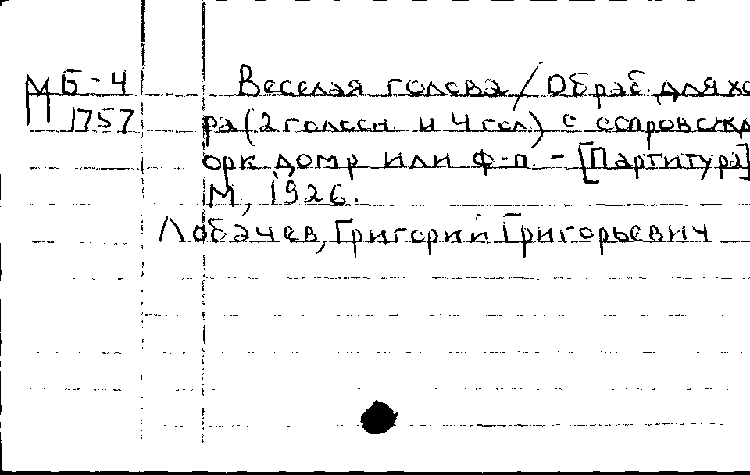 МБ-4 Веселая голова / Обраб для хо
П 1757 ра (2 голосн и 4 гол) с сопровожд
орк домр или ф-п - [Партитура]
М, 1926.
Лобачев, Григорий Григорьевич